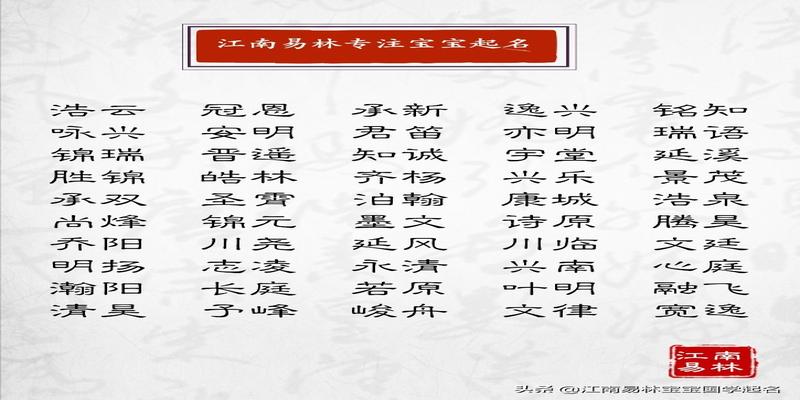 江南易林专注宝宝起名
浩云 冠恩 承新 逸兴 铭知
咏兴 安明 君笛 亦明 瑞语
锦瑞 晋遥 知诚 宇堂 延溪
胜锦 皓林 齐杨 兴乐 景茂
承双 圣霄 泊翰 康城 浩泉
尚烽 锦元 墨文 诗原 腾昊
乔阳 川尧 延风 川临 文廷
明扬 志凌 永清 兴南 心庭
瀚阳 长庭 若原 叶明 融飞
清昊 予峰 峻舟 文律 宽逸
江南
易林
头条 @江南易林宝宝国学起名